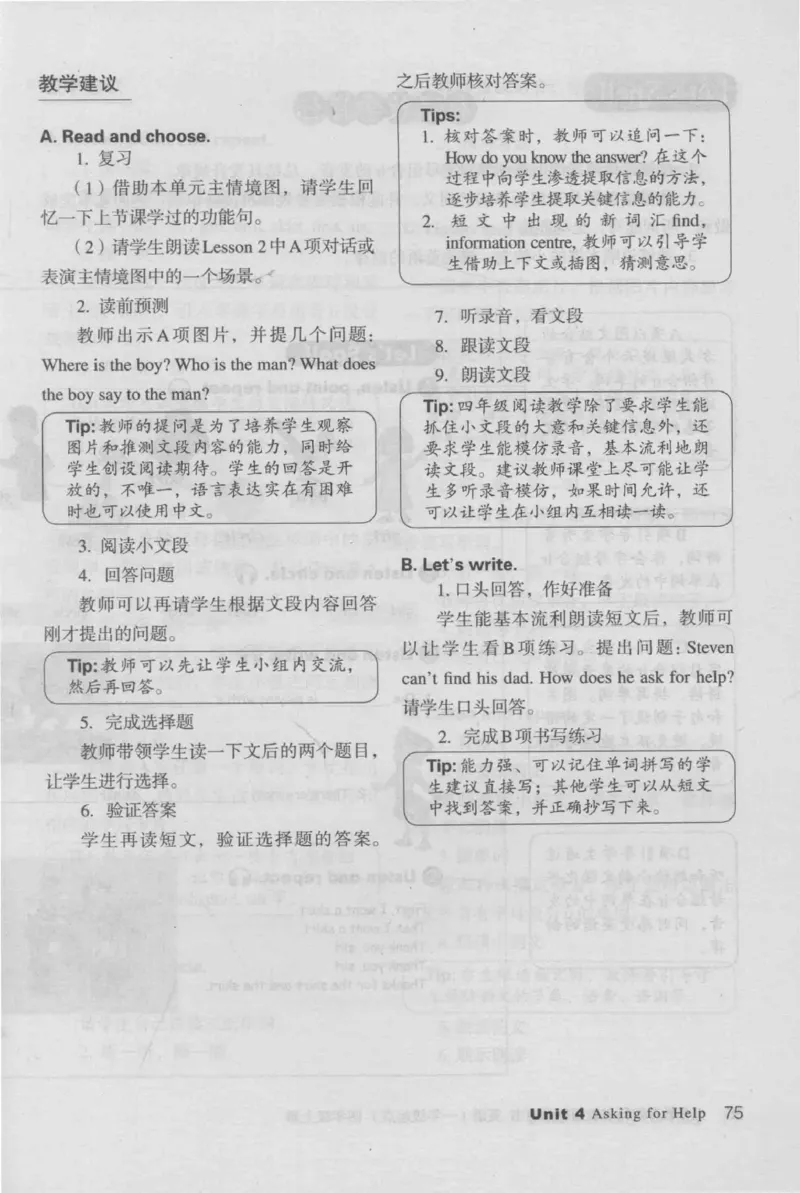 教学建议
A. Read and choose.
1. 复习
（1）借助本单元主情境图，请学生回
忆一下上节课学过的功能句。
（2）请学生朗读Lesson 2中A项对话或
表演主情境图中的一个场景。
2. 读前预测
教师出示A项图片，并提几个问题：
Where is the boy? Who is the man? What does
the boy say to the man?
Tip:教师的提问是为了培养学生观察
图片和推测文段内容的能力，同时给
学生创设阅读期待。学生的回答是开
放的，不唯一，语言表达实在有困难
时也可以使用中文。
3. 阅读小文段
4. 回答问题
教师可以再请学生根据文段内容回答
刚才提出的问题。
Tip:教师可以先让学生小组内交流，
然后再回答。
5. 完成选择题
教师带领学生读一下文后的两个题目，
让学生进行选择。
6. 验证答案
学生再读短文，验证选择题的答案。
之后教师核对答案。
Tips:
1. 核对答案时，教师可以追问一下：
How do you know the answer? 在这个
过程中向学生渗透提取信息的方法，
逐步培养学生提取关键信息的能力。
2. 短文中出现的新词汇find,
information centre, 教师可以引导学
生借助上下文或插图，猜测意思。
7. 听录音，看文段
8. 跟读文段
9. 朗读文段
Tip:四年级阅读教学除了要求学生能
抓住小文段的大意和关键信息外，还
要求学生能模仿录音，基本流利地朗
读文段。建议教师课堂上尽可能让学
生多听录音模仿，如果时间允许，还
可以让学生在小组内互相读一读。
B. Let's write.
1. 口头回答，作好准备
学生能基本流利朗读短文后，教师可
以让学生看B项练习。提出问题：Steven
can't find his dad. How does he ask for help?
请学生口头回答。
2. 完成B项书写练习
Tip:能力强、可以记住单词拼写的学
生建议直接写；其他学生可以从短文
中找到答案，并正确抄写下来。
Unit 4 Asking for Help 75